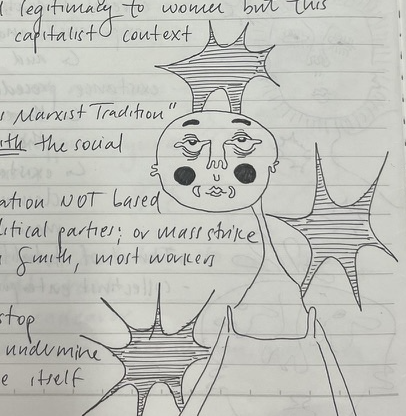 legitimacy to women but this
capitalist context
Marxist Tradition"
with the social
ation NOT based
litical parties; or mass strike
Smith, most workers
stop
undermine
e itself